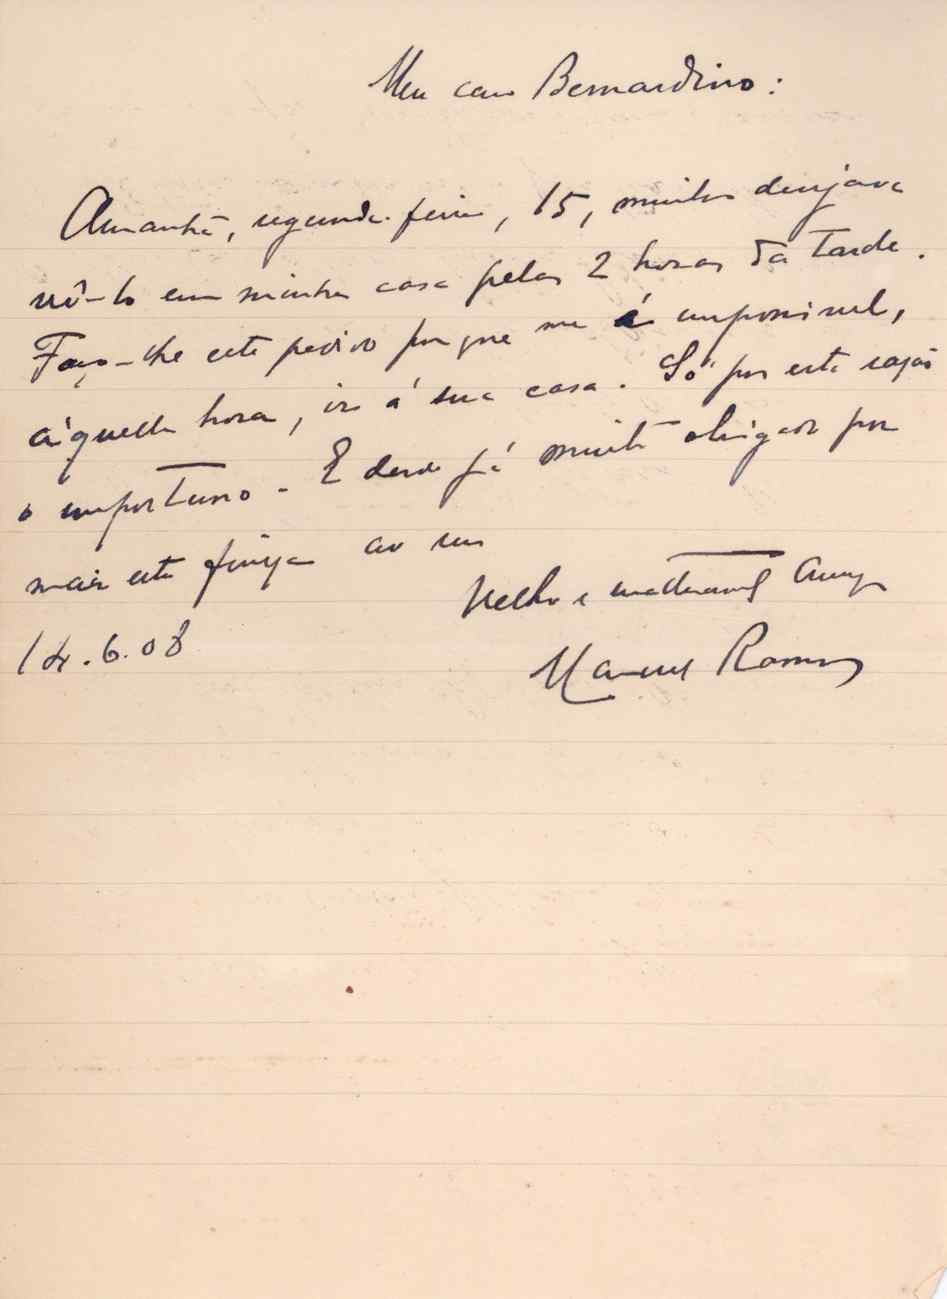 Meu caro Bernardino:
Amanhã, segunda-feira, 15, muito desejava
vê-lo em minha casa pelas 2 horas da tarde.
Faço-lhe este pedido porque me é impossivel,
áquella hora, ir á sua casa. Só por esta razão
o importuno. E desde já muito obrigado por
mais esta fineza ao seu
Velho e inalteravel Amigo
14.6.08
Manuel Ramos